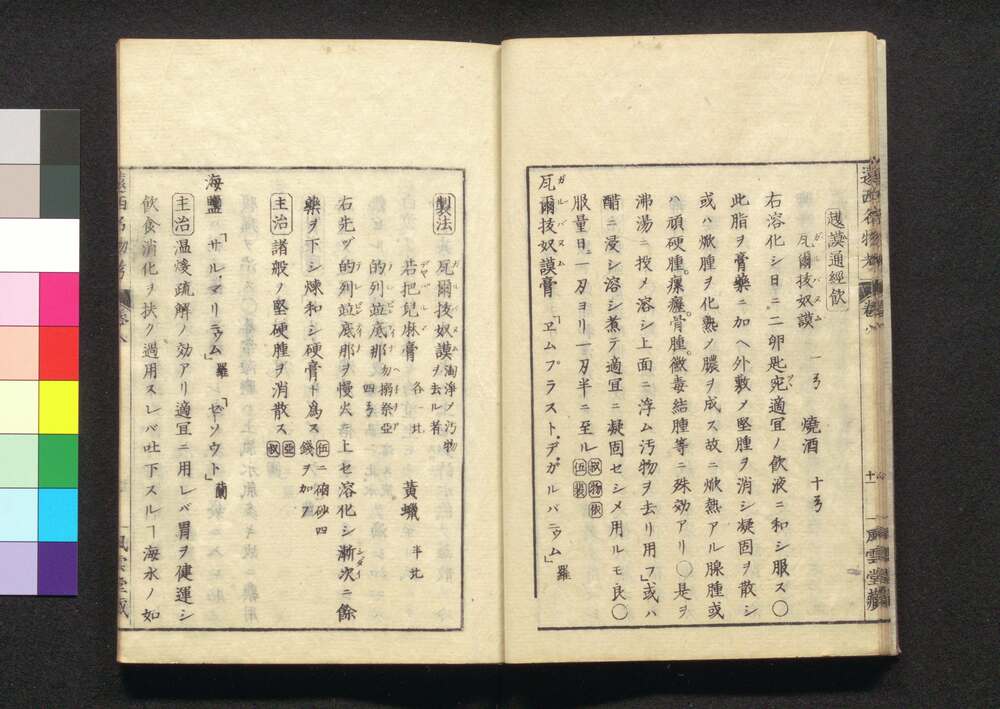 遠西名物考 卷八
越謨通經飲
瓦爾抜奴謨 一弓 燒酒 十弓
右溶化シ日ニ二卵匙宛適冝ノ飲液ニ和シ服ス〇
此脂ヲ膏藥ニ加ヘ外敷〆堅腫ヲ消シ凝固ヲ散シ
或ハ焮腫ヲ化熟ノ膿ヲ成ス故ニ焮熱アル腺腫或
ハ頑硬腫。瘰癧。骨腫。黴毒結腫等ニ殊効アリ〇是ヲ
沸湯ニ投メ溶シ上面ニ浮ム汚物ヲ去リ用フ」或ハ
醋ニ浸シ溶シ煮テ適冝ニ凝固セシメ用ルモ良〇
服量日ニ一刃ヨリ一刃半ニ至ル 叔物依 伍製
瓦爾抜奴謨膏 「ヱムプラスト、デ、ガルバニウム」羅
ガルバヌム
十一 風雲堂藏
製法 瓦爾抜奴謨 淘淨ノ汚物ヲ去ル者
若把兒麻膏 各一北 黃蠟 半北
的列並底那 四弓
右先ヅ的列並底那ヲ慢火上セ溶化シ漸次ニ餘
藥ヲ下シ煉和シ硬膏ト爲ス 伍ニ硇砂四錢ヲ加フ
主治 諸般ノ堅硬腫ヲ消散ス 亞 叔
海鹽 「サル、マリニウム」羅 「ゼソウト」蘭
主治 温煖疏解ノ効アリ適冝ニ用レバ胃ヲ健運シ
飲食消化ヲ扶ク過用スレバ吐下スルヿ海水ノ如
遠西名物考 卷八 風雲堂藏